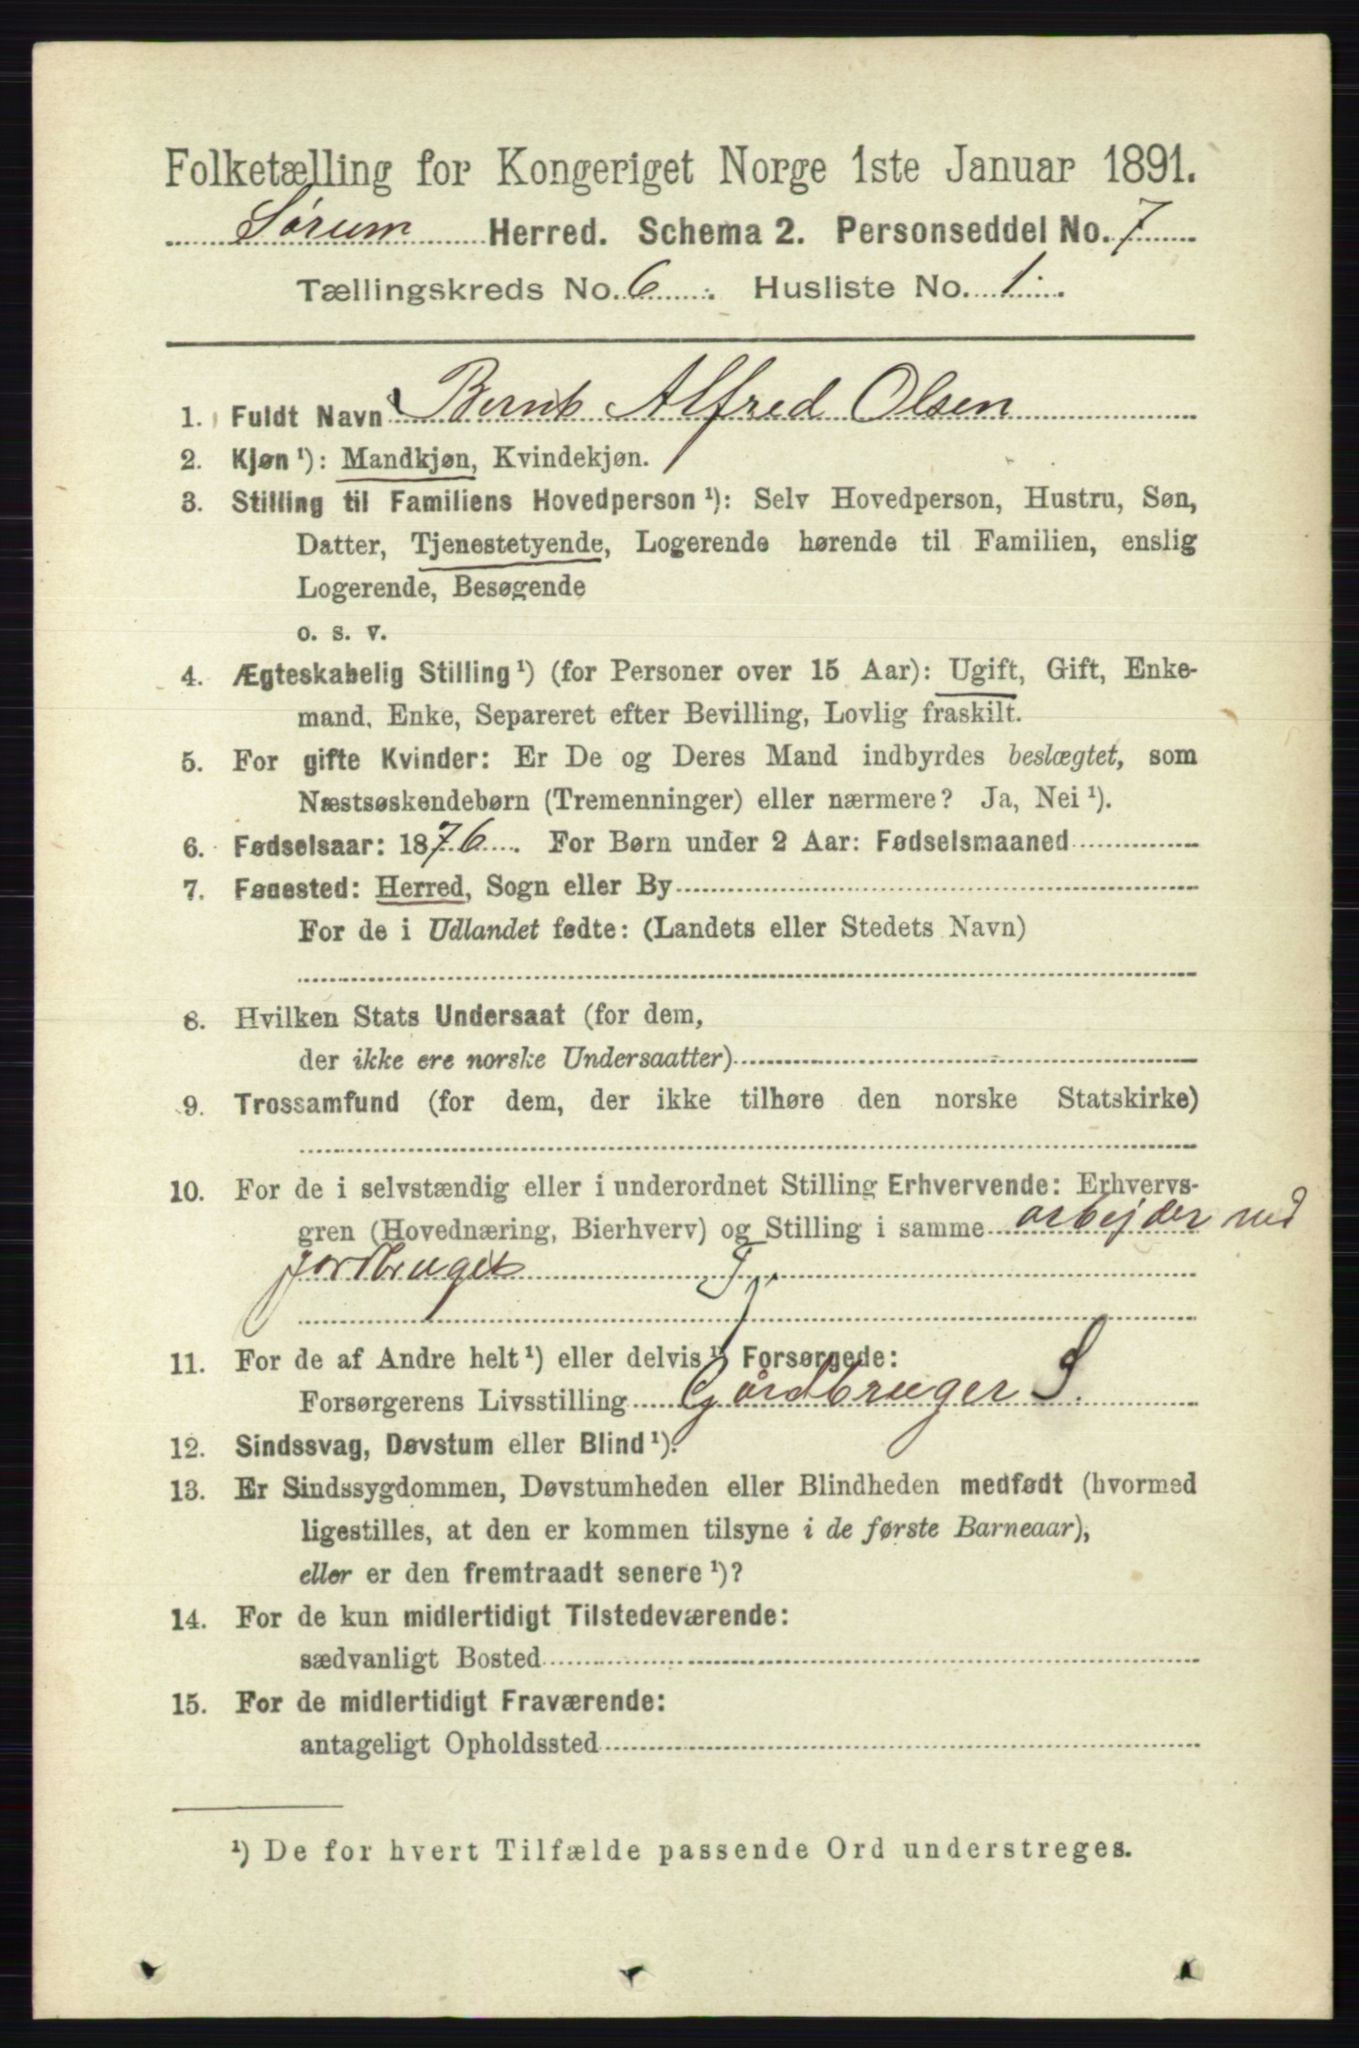 Folketælling for Kongeriget Norge 1ste Januar 1891.
Sørum Herred. Schema 2. Personseddel No. 7
Tællingskreds No. 6. Husliste No. 1.
1. Fuldt Navn Bernt Alfred Olsen
2. Kjøn ¹): Mandkjøn, Kvindekjøn.
3. Stilling til Familiens Hovedperson ¹): Selv Hovedperson, Hustru, Søn,
Datter, Tjenestetyende, Logerende hørende til Familien, enslig
Logerende, Besøgende
o. s. v.
4. Ægteskabelig Stilling ¹) (for Personer over 15 Aar): Ugift, Gift, Enke-
mand, Enke, Separeret efter Bevilling, Lovlig fraskilt.
5. For gifte Kvinder: Er De og Deres Mand indbyrdes beslægtet, som
Næstsøskendebørn (Tremenninger) eller nærmere? Ja, Nei ¹).
6. Fødselsaar: 1876. For Børn under 2 Aar: Fødselsmaaned
7. Fødested: Herred, Sogn eller By
For de i Udlandet fødte: (Landets eller Stedets Navn)
8. Hvilken Stats Undersaat (for dem,
der ikke ere norske Undersaatter)
9. Trossamfund (for dem, der ikke tilhøre den norske Statskirke)
10. For de i selvstændig eller i underordnet Stilling Erhvervende: Erhvervs-
gren (Hovednæring, Bierhverv) og Stilling i samme arbejder ved
jordbruget T.
11. For de af Andre helt ¹) eller delvis ¹) Forsørgede:
Forsørgerens Livsstilling Gårdbruger S.
12. Sindssvag, Døvstum eller Blind ¹).
13. Er Sindssygdommen, Døvstumheden eller Blindheden medfødt (hvormed
ligestilles, at den er kommen tilsyne i de første Barneaar),
eller er den fremtraadt senere ¹)?
14. For de kun midlertidigt Tilstedeværende:
sædvanligt Bosted
15. For de midlertidigt Fraværende:
antageligt Opholdssted
¹) De for hvert Tilfælde passende Ord understreges.